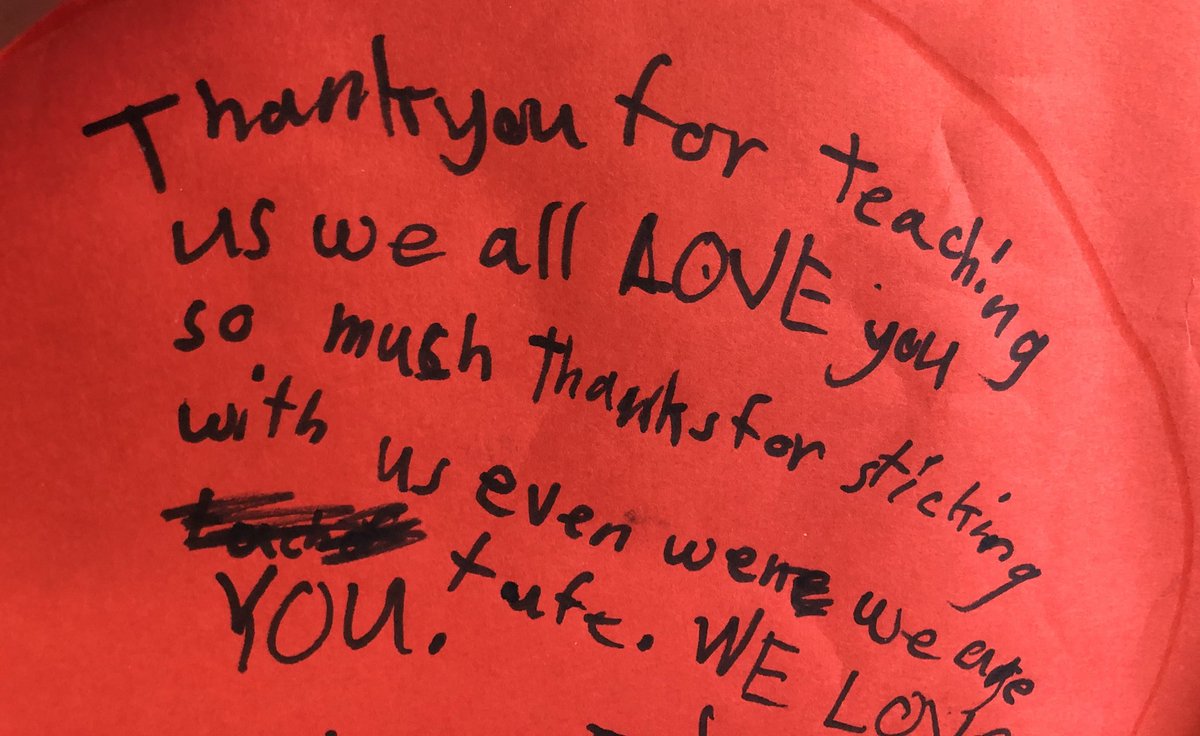 Thankyou for teaching
us we all LOVE you
so much thanks for sticking
with us even were we are
tufe. WE LOVE
YOU.